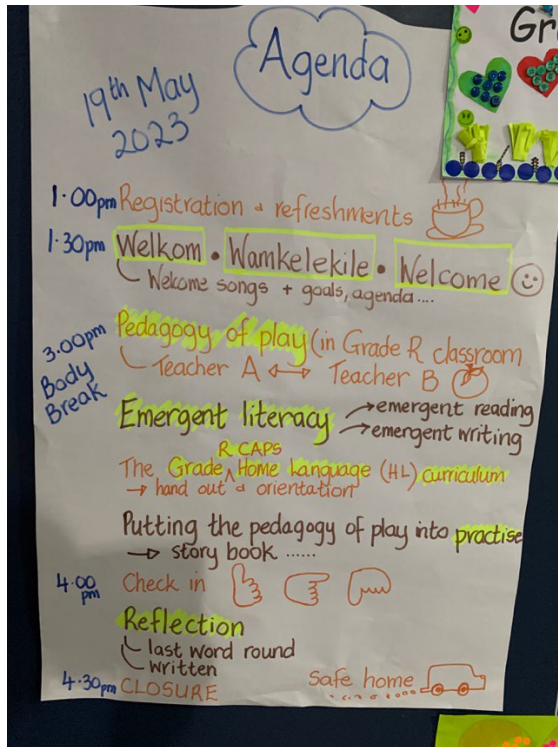 Agenda
19th May
2023
1.00pm Registration & refreshments
1.30pm Welkom • Wamkelekile • Welcome
Welcome songs + goals, agenda....
3.00pm Body Break
Pedagogy of play (in Grade R classroom
Teacher A ↔ Teacher B
Emergent literacy → emergent reading
→ emergent writing
R CAPS
The Grade ^ Home Language (HL) curriculum
→ hand out & orientation
Putting the pedagogy of play into practise
→ story book ......
4.00 pm Check in
Reflection
last word round
written
4.30pm CLOSURE safe home
Gr